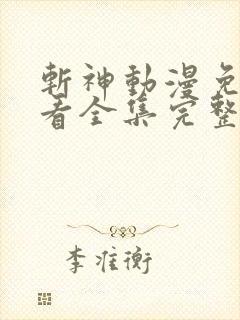 斬神動漫免
看全集完整
李准衡